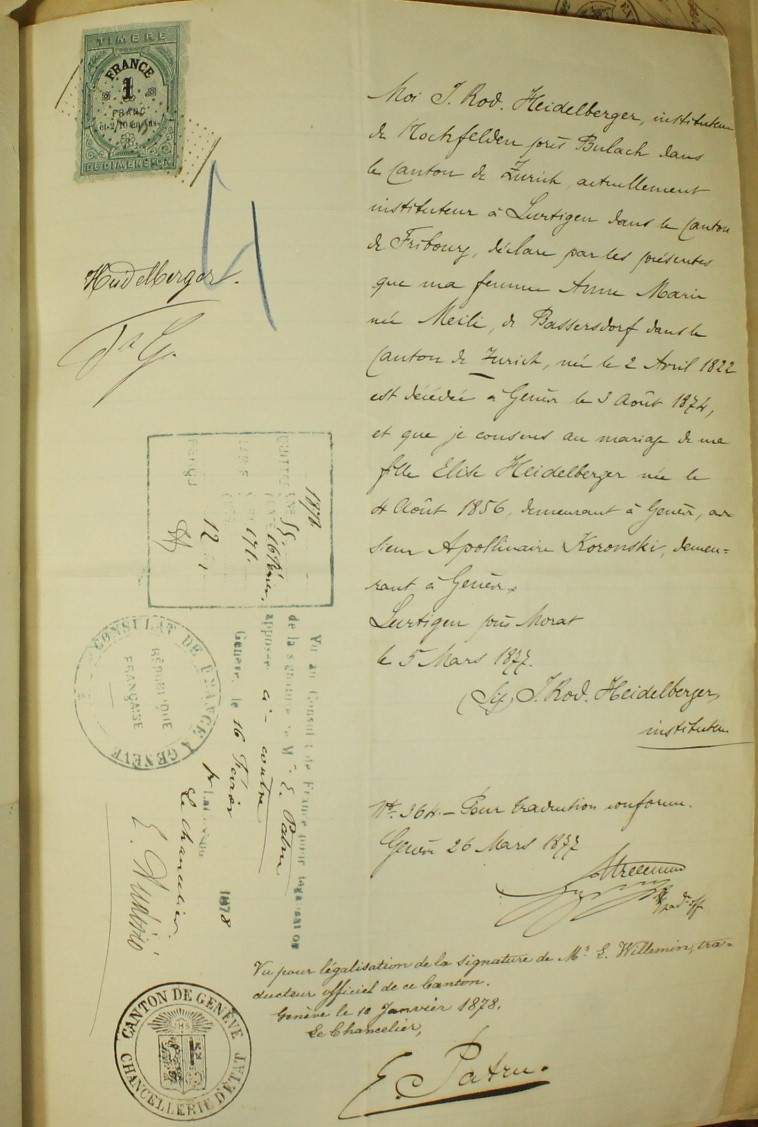 TIMBRE
FRANCE
1
FRANC
DE DIMENSION
Heidelberger.
Moi J. Rod. Heidelberger, instituteur
de Hochfelden près Bulach dans
le Canton de Zurich, actuellement
instituteur à Lurtigen dans le Canton
de Fribourg, déclare par les présentes
que ma femme Anne Marie
née Meili, de Bassersdorf dans le
Canton de Zurich, née le 2 Avril 1822
est décédée à Genève le 3 Août 1874,
et que je consens au mariage de ma
fille Elise Heidelberger née le
4 Août 1856, demeurant à Genève, au
sieur Apollinaire Koronski, demeu-
rant à Genève.
Lurtigen près Morat
le 5 Mars 1877.
(Sig) J. Rod. Heidelberger,
instituteur
No. 364. – Pour traduction conforme.
Genève 26 Mars 1877
Vu pour légalisation de la signature de Mr. E. Willemin, tra-
ducteur officiel de ce Canton.
Genève le 10 Janvier 1878.
Le Chancelier,
E. Patru.
1878
55
176
12
Vu au Consulat de France pour légalisation
de la signature de Mr. E. Patru
apposée ci-contre
Genève, le 16 Février 1878
Le Chancelier
CONSULAT DE FRANCE A GENÈVE
RÉPUBLIQUE
FRANÇAISE
CANTON DE GENÈVE
CHANCELLERIE D'ÉTAT